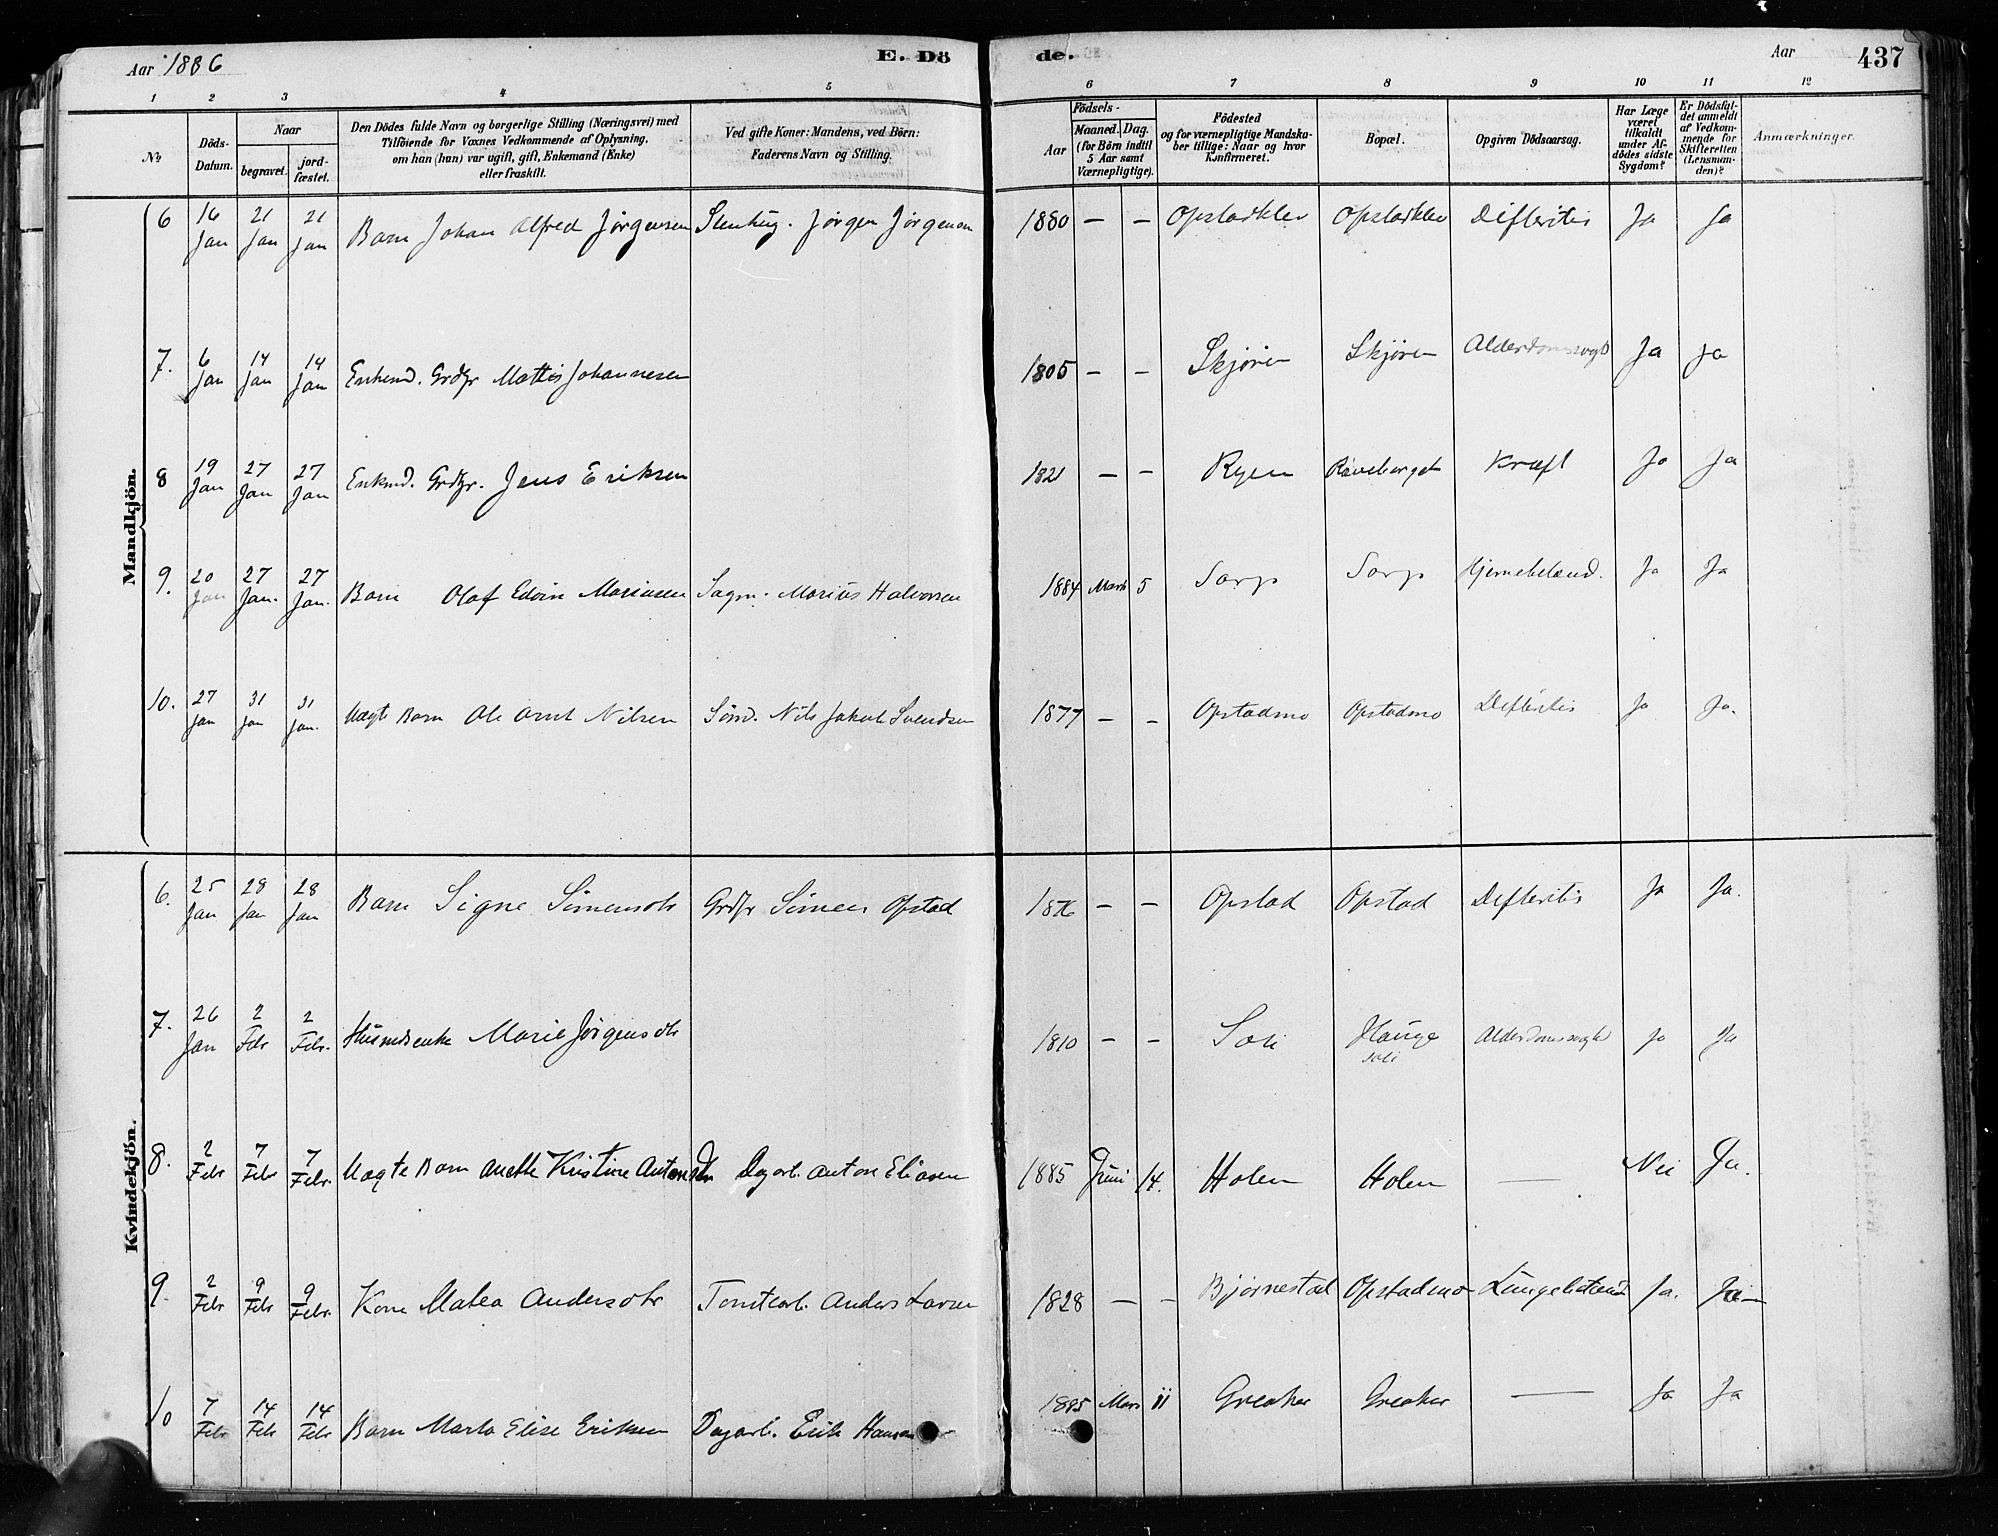 Aar 1886 E. Dö de. Aar 437
1 2 3 4 5 6 7 8 9 10 11 12
No
Döds-Datum.
Naar
begravet.
jord-fæstet.
Den Dödes fulde Navn og borgerlige Stilling (Næringsvei) med
Tilföiende for Voxnes Vedkommende af Oplysning,
om han (hun) var ugift, gift, Enkemand (Enke)
eller fraskilt.
Ved gifte Koner: Mandens, ved Börn:
Faderens Navn og Stilling.
Födsels-
Aar
Maaned. Dag.
(for Börn indtil
5 Aar samt
Værnepligtige).
Födested
og for værnepligtige Mandska-
ber tillige: Naar og hvor
Konfirmeret.
Bopæl.
Opgiven Dödsaarsag.
Har Læge
været
tilkaldt
under Af-
dödes sidste
Sygdom?
Er Dödsfal-
det anmeldt
af Vedkom-
mende for
Skifteretten
(Lensman-
den)?
Anmærkninger.
Mandkjön.
6 16 Jan 21 Jan 21 Jan Barn Johan Alfred Jørgensen Stenhug. Jørgen Jørgensen 1880 — — Opstadklev Opstadklev Difteritis Ja Ja
7. 6 Jan 14 Jan 14 Jan Enkemd. Grdbr Mattis Johannesen 1805 — — Skjøren Skjøren Alderdomssvagh Ja Ja
8 19 Jan 27 Jan 27 Jan Enkmd. Grdbr. Jens Eriksen 1821 — — Ryen Räveberget Kræft Ja Ja
9. 20 Jan 27 Jan. 27 Jan. Barn Olaf Edvin Mariusen Sagm. Marius Halvorsen 1884 Marts 5 Sarp Sarp Hjernebetænd. Ja Ja
10. 27 Jan 31 Jan 31 Jan. Uægte Barn Ole Arnt Nilsen Sømd. Nils Jakob Svendsen 1877 — — Opstadmo Opstadmo Difteritis Ja Ja.
Kvindekjön.
6. 25 Jan 28 Jan 28 Jan Barn Signe Simensdtr Grdbr Simen Opstad — — Opstad Opstad Difteritis Ja Ja.
7. 26 Jan 2 Febr 2 Febr. Husmdsenke Marie Jørgensdtr 1810 — — Soli Hauge
Soli Alderdomssvagh Ja Ja
8. 2 Febr 7 Febr 7 Febr. Uægte Barn Anette Kristine Antonsdtr Dagarb. Anton Eliasen 1885 Juni 14. Holen Holen — Nei Ja.
9. 2 Febr 9 Febr 9 Febr. Kone Matea Andersdtr Tomtearb. Anders Larsen 1828 — — Bjørnestad Opstadmo Lungebetænd Ja. Ja —
10 7 Febr 14 Febr 14 Febr Barn Marta Elise Eriksen Dagarb. Erik Hansen 1885 Mars 11 Greaker Greaker — Ja Ja